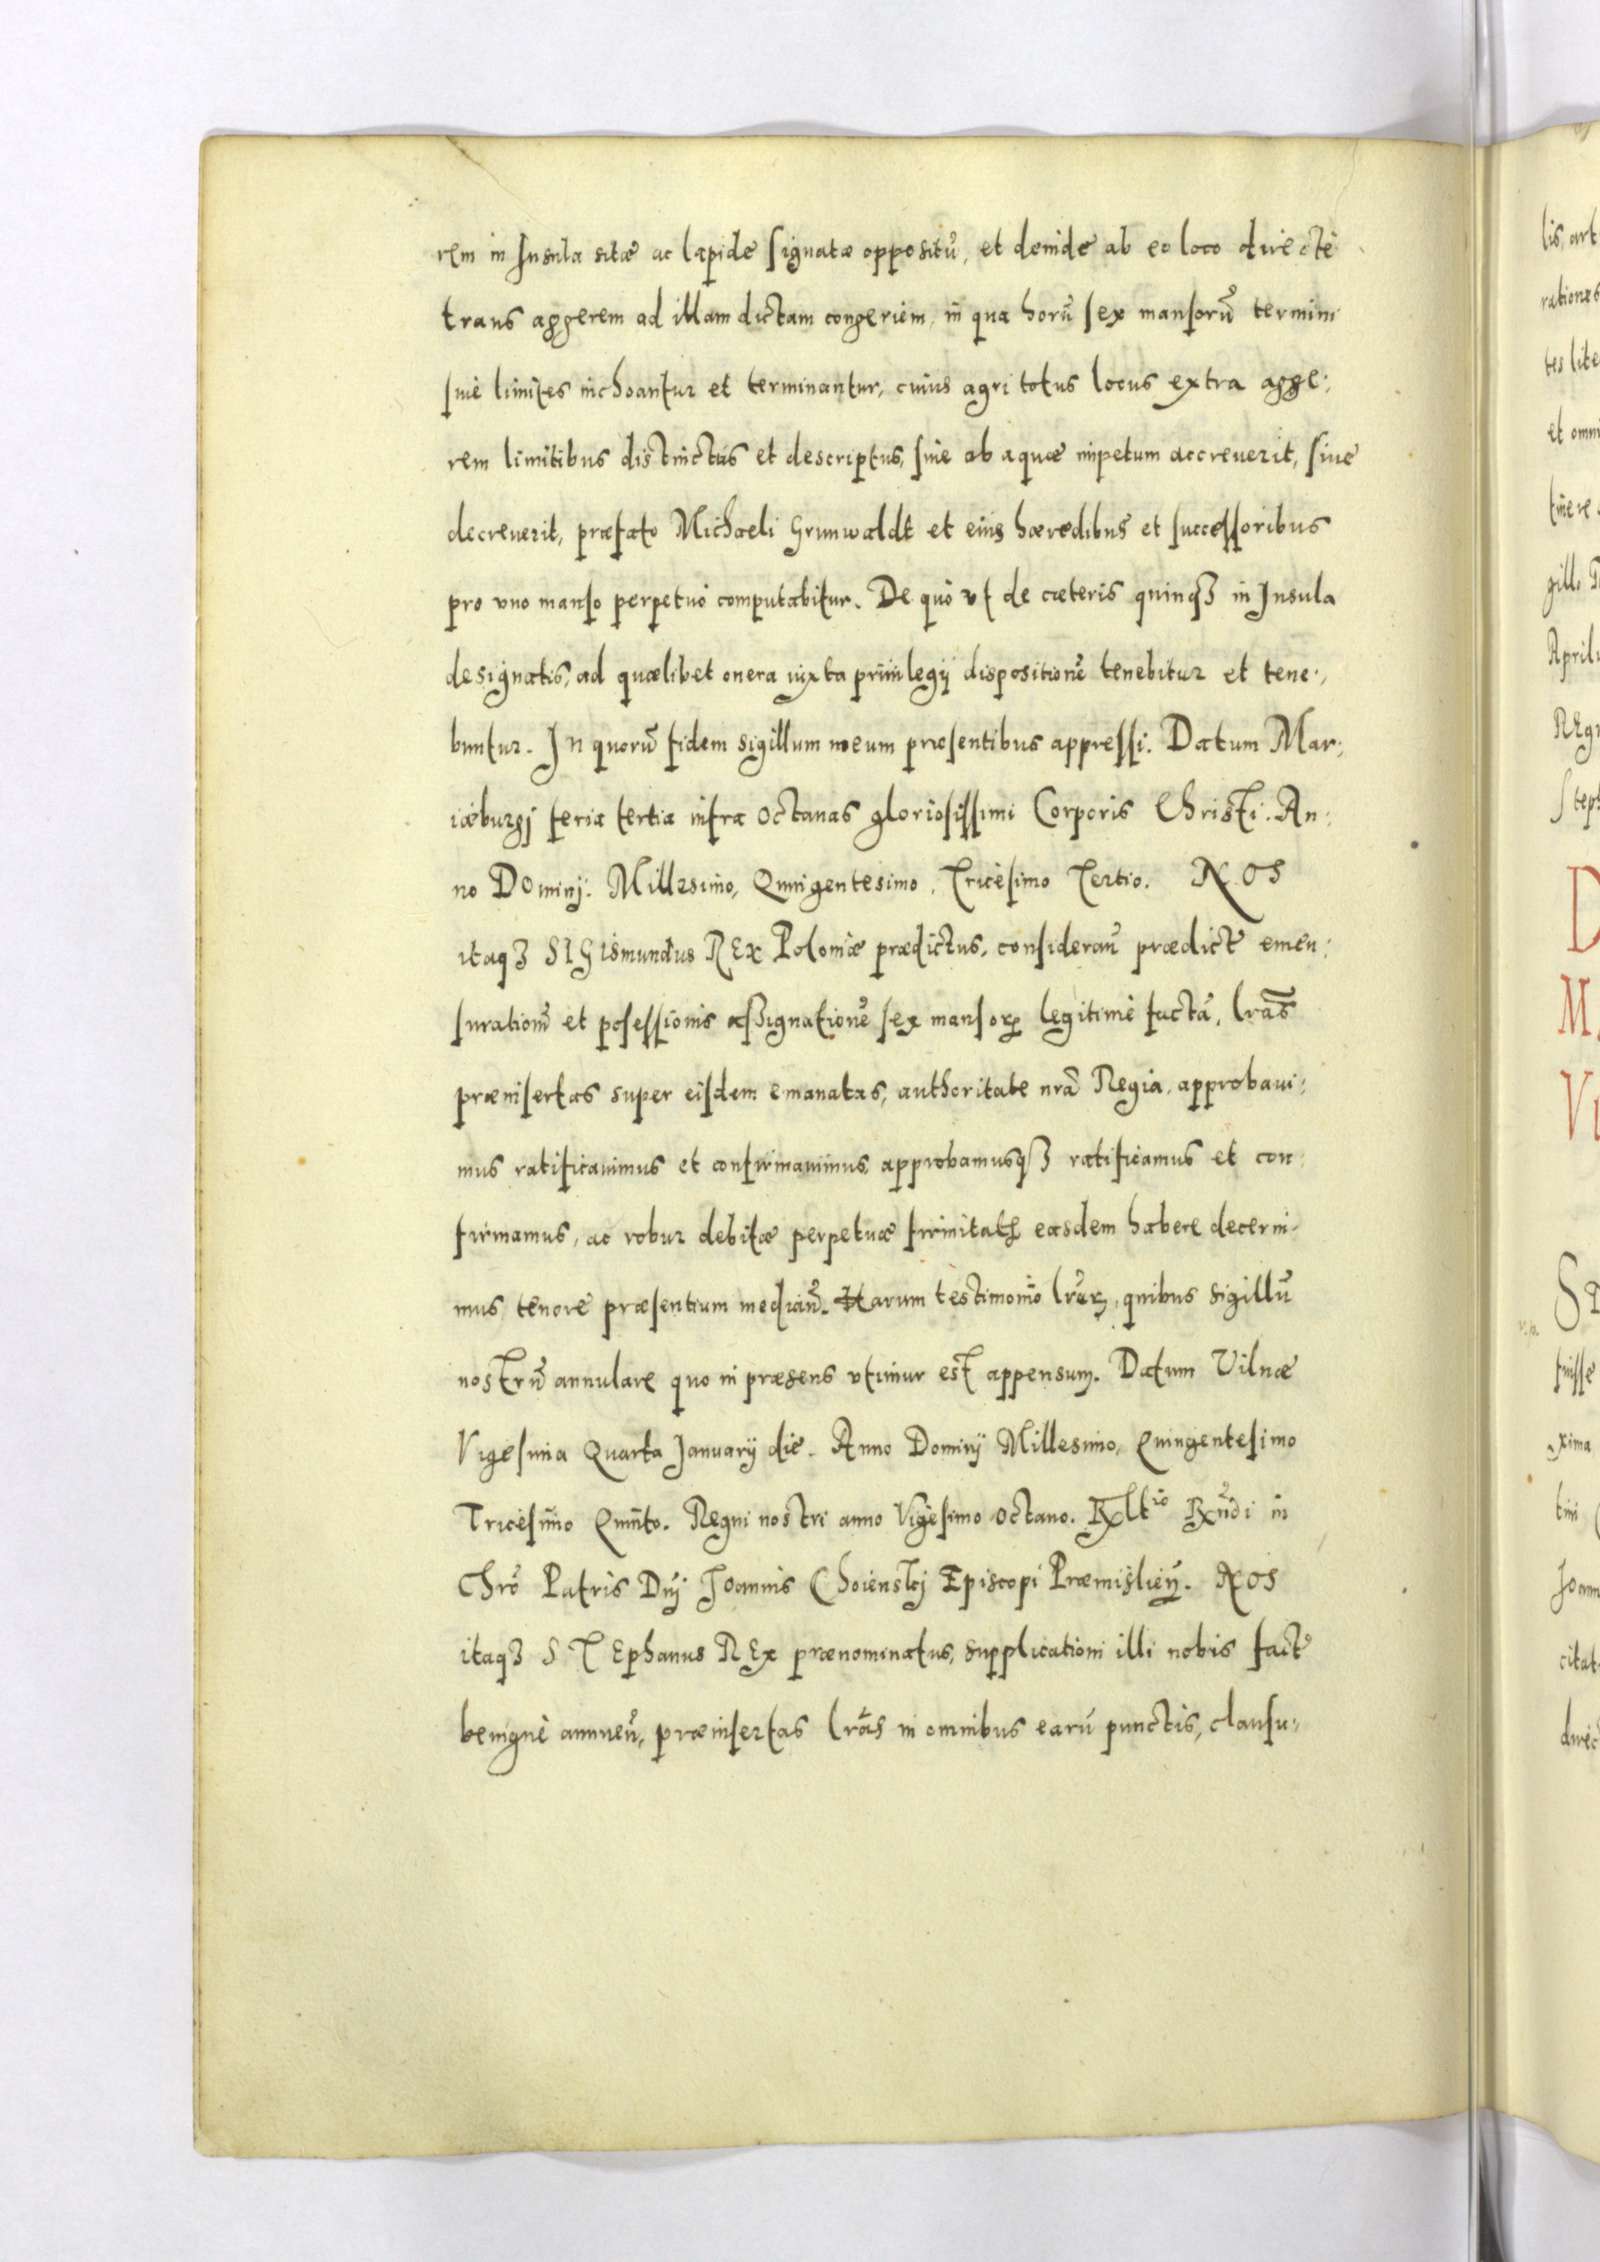 rem in Insula sitæ ac lapide signatæ oppositũ, et deinde ab eo loco directè
trans aggerem ad illam dictam congeriem, in qua horũ sex mansorũ termini
siuè limites inchoantur et terminantur, cuius agri totus locus extra agge:
rem limitibus distinctus et descriptus, siue ab aquæ impetum accreuerit, siue
decreuerit, præfato Michaeli Grunwaldt et eius hæredibus et successoribus
pro vno manso perpetuò computabitur. De quò vt de cæteris quinqȝ in Insula
designatis, ad quælibet onera iuxta priuilegij dispositionẽ tenebitur et tene:
buntur. In quorũ fidem sigillum meum præsentibus appressi. Datum Mar:
iæburgj feria tertia infra Octauas gloriosissimi Corporis Christi. An:
no DOminj. Millesimo, Quingentesimo, Tricesimo Tertio. NOS
itaqȝ SIGismundus REx Poloniæ prædictus, considerañ prædict emen:
surationẽ et posessionis assignationẽ sex mansoꝝ legitimè factã, lr̃as
præinsertas super eisdem emanatas, authoritate nr̃a Regia, approbaui:
mus ratificauimus et confirmauimus approbamusqȝ ratificamus et con:
firmamus, ac robur debitæ perpetuæ firmitatꝭ easdem habere decerni:
mus tenore præsentium mediañ. Harum testimonio lr̃aꝝ, quibus sigillũ
nostrũ annulare quo in præsens vtimur est appensum. Datum Vilnæ
Vigesima Quarta Januarij die. Anno Dominij Millesimo, Quingentesimo
Tricesimo Quinto. Regni nostri anno Vigesimo octauo. Rlt̃io Rñdi in
Chrõ Patris Dñj Joannis Choienskj Episcopi Præmislieñ. NOS
itaqȝ STEphanus REx prænominatus, supplicationi illi nobis fact
benignè annueñ, præinsertas lr̃as in omnibus earũ punctis, clausu: